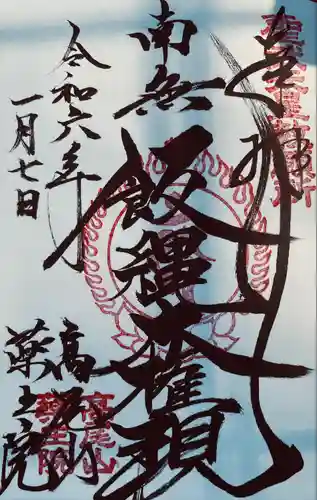 奉拝
南無飯縄大権現
令和六年
一月七日
高尾山
薬王院
高尾山
薬王院